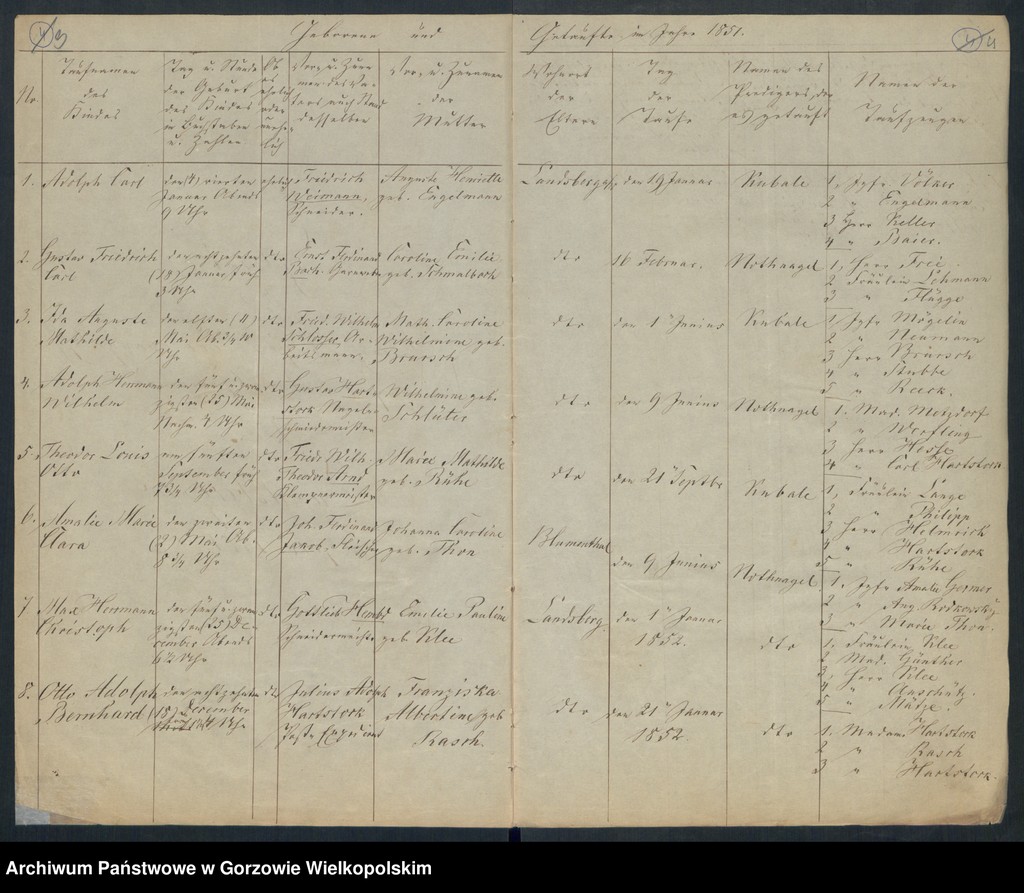 Geborene und Getaufte im Jahre 1851.
Nr.
Taufnamen des Kindes
Tag u. Stunde der Geburt des Kindes in Buchstaben u. Zahlen
Ob es ehelich oder unehelich
Vor- u. Zunamen des Vaters nach Stand desselben
Vor- u. Zunamen der Mutter
Wohnort der Eltern
Tag der Taufe
Namen des Predigers, der es getauft
Namen der Taufzeugen
1. Adolph Carl
den (4) vierten Januar Abends 9 Uhr
ehelich
Friedrich Weimann, Schneider.
Auguste Henriette geb. Engelmann
Landsberg
den 19 Januar
Kubale
1, Jgfr. Völker
2 " Engelmann
3 Herr Keller
4 " Baier.
2. Gustav Friedrich Carl
den achtzehnten (18) Januar früh 3 Uhr
dto
Ernst Ferdinand
Caroline Emilie geb. Schmalbach
dto
16 Februar.
Nothnagel
1, Herr Frei
2, Fräulein Lehmann
3 " Flügge
3. Ida Auguste Mathilde
den elften (11) Mai Ab. 3/4 10 Uhr
dto
Fried. Wilhelm Schlosser, Arbeitsmann.
Math. Caroline Wilhelmine geb. Brursch
dto
den 1 Junius
Kubale
1, Jgfr. Mögelin
2 " Neumann
3 Herr Brursch
4 " Stubbe
5 " Reeck.
4. Adolph Herrmann Wilhelm
den fünf u. zwanzigsten (25) Mai Nachm. 4 Uhr
dto
Gustav Hartstock Nagelschmiedemeister
Wilhelmine geb. Schlüter
dto
den 9 Junius
Nothnagel
1. Mad. Metzdorf
2 "
3 Herr Hesse
4 " Carl Hartstock
5. Theodor Louis Otto
am fünften September früh 3/4 Uhr
dto
Friedr. Wilh. Theodor Arnd Klempnermeister
Marie Mathilde geb. Rühe
dto
den 21 Septbr
Kubale
1, Fräulein Lange
2 " Philipp
3 Herr Helmrick
4 " Hartstock
5 " Rühe
6. Amalie Marie Clara
den zweiten (2) Mai Ab. 8 3/4 Uhr
dto
Joh. Ferdinand Jacob, Fleischer
Johanna Caroline geb. Thon
Blumenthal
den 9 Junius
Nothnagel
1, Jgfr. Amalie Germer
2 " Aug. Rodkowsky
3 " Marie Thon.
7 Max Herrmann Christoph
den fünf u. zwanzigsten (25) December Abends 6 1/2 Uhr
dto
Gottlieb Hembd Schneidermeister
Emilie Pauline geb Klee
Landsberg
den 1 Januar 1852.
dto
1, Fräulein Klee
2 Mad. Günther
3, Herr Klee
4 " Anschütz.
5 " Matze.
8. Otto Adolph Bernhard
den achtzehnten (18) December Uhr
dto
Julius Adolph Hartstock Post-Expedient
Franziska Albertine geb Rasch.
dto
den 21 Januar 1852.
dto
1. Madam Hartstock
2 " Rasch
3 " Hartstock.
Archiwum Państwowe w Gorzowie Wielkopolskim